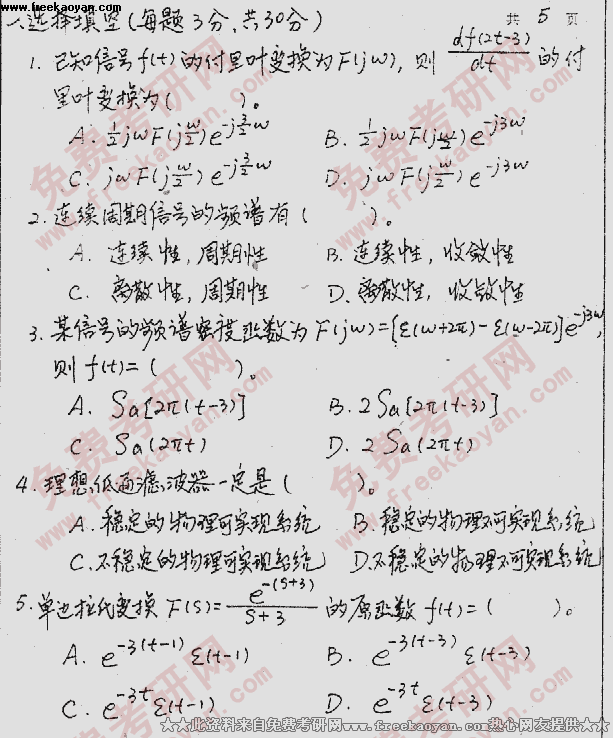 www.freekaoyan.com
一、选择填空(每题3分,共30分)
共 5 页
1. 已知信号f(t)的付里叶变换为F(jω), 则 df(2t-3)/dt 的付
里叶变换为( )。
A. ½jωF(jω/2)e^{-j(3/2)ω} B. ½jωF(jω/2)e^{-j3ω}
C. jωF(jω/2)e^{-j(3/2)ω} D. jωF(jω/2)e^{-j3ω}
2. 连续周期信号的频谱有( )。
A. 连续性,周期性 B. 连续性,收敛性
C. 离散性,周期性 D. 离散性,收敛性
3. 某信号的频谱密度函数为F(jω)=[ε(ω+2π)-ε(ω-2π)]e^{-j3ω},
则f(t)=( )。
A. Sa[2π(t-3)] B. 2Sa[2π(t-3)]
C. Sa(2πt) D. 2Sa(2πt)
4. 理想低通滤波器一定是( )。
A. 稳定的物理可实现系统 B. 稳定的物理不可实现系统
C. 不稳定的物理可实现系统 D. 不稳定的物理不可实现系统
5. 单边拉氏变换 F(S)=e^{-(S+3)}/(S+3) 的原函数f(t)=( )。
A. e^{-3(t-1)}ε(t-1) B. e^{-3(t-3)}ε(t-3)
C. e^{-3t}ε(t-1) D. e^{-3t}ε(t-3)
★★此资料来自免费考研网www.freekaoyan.com热心网友提供★★
免费考研网
www.freekaoyan.com